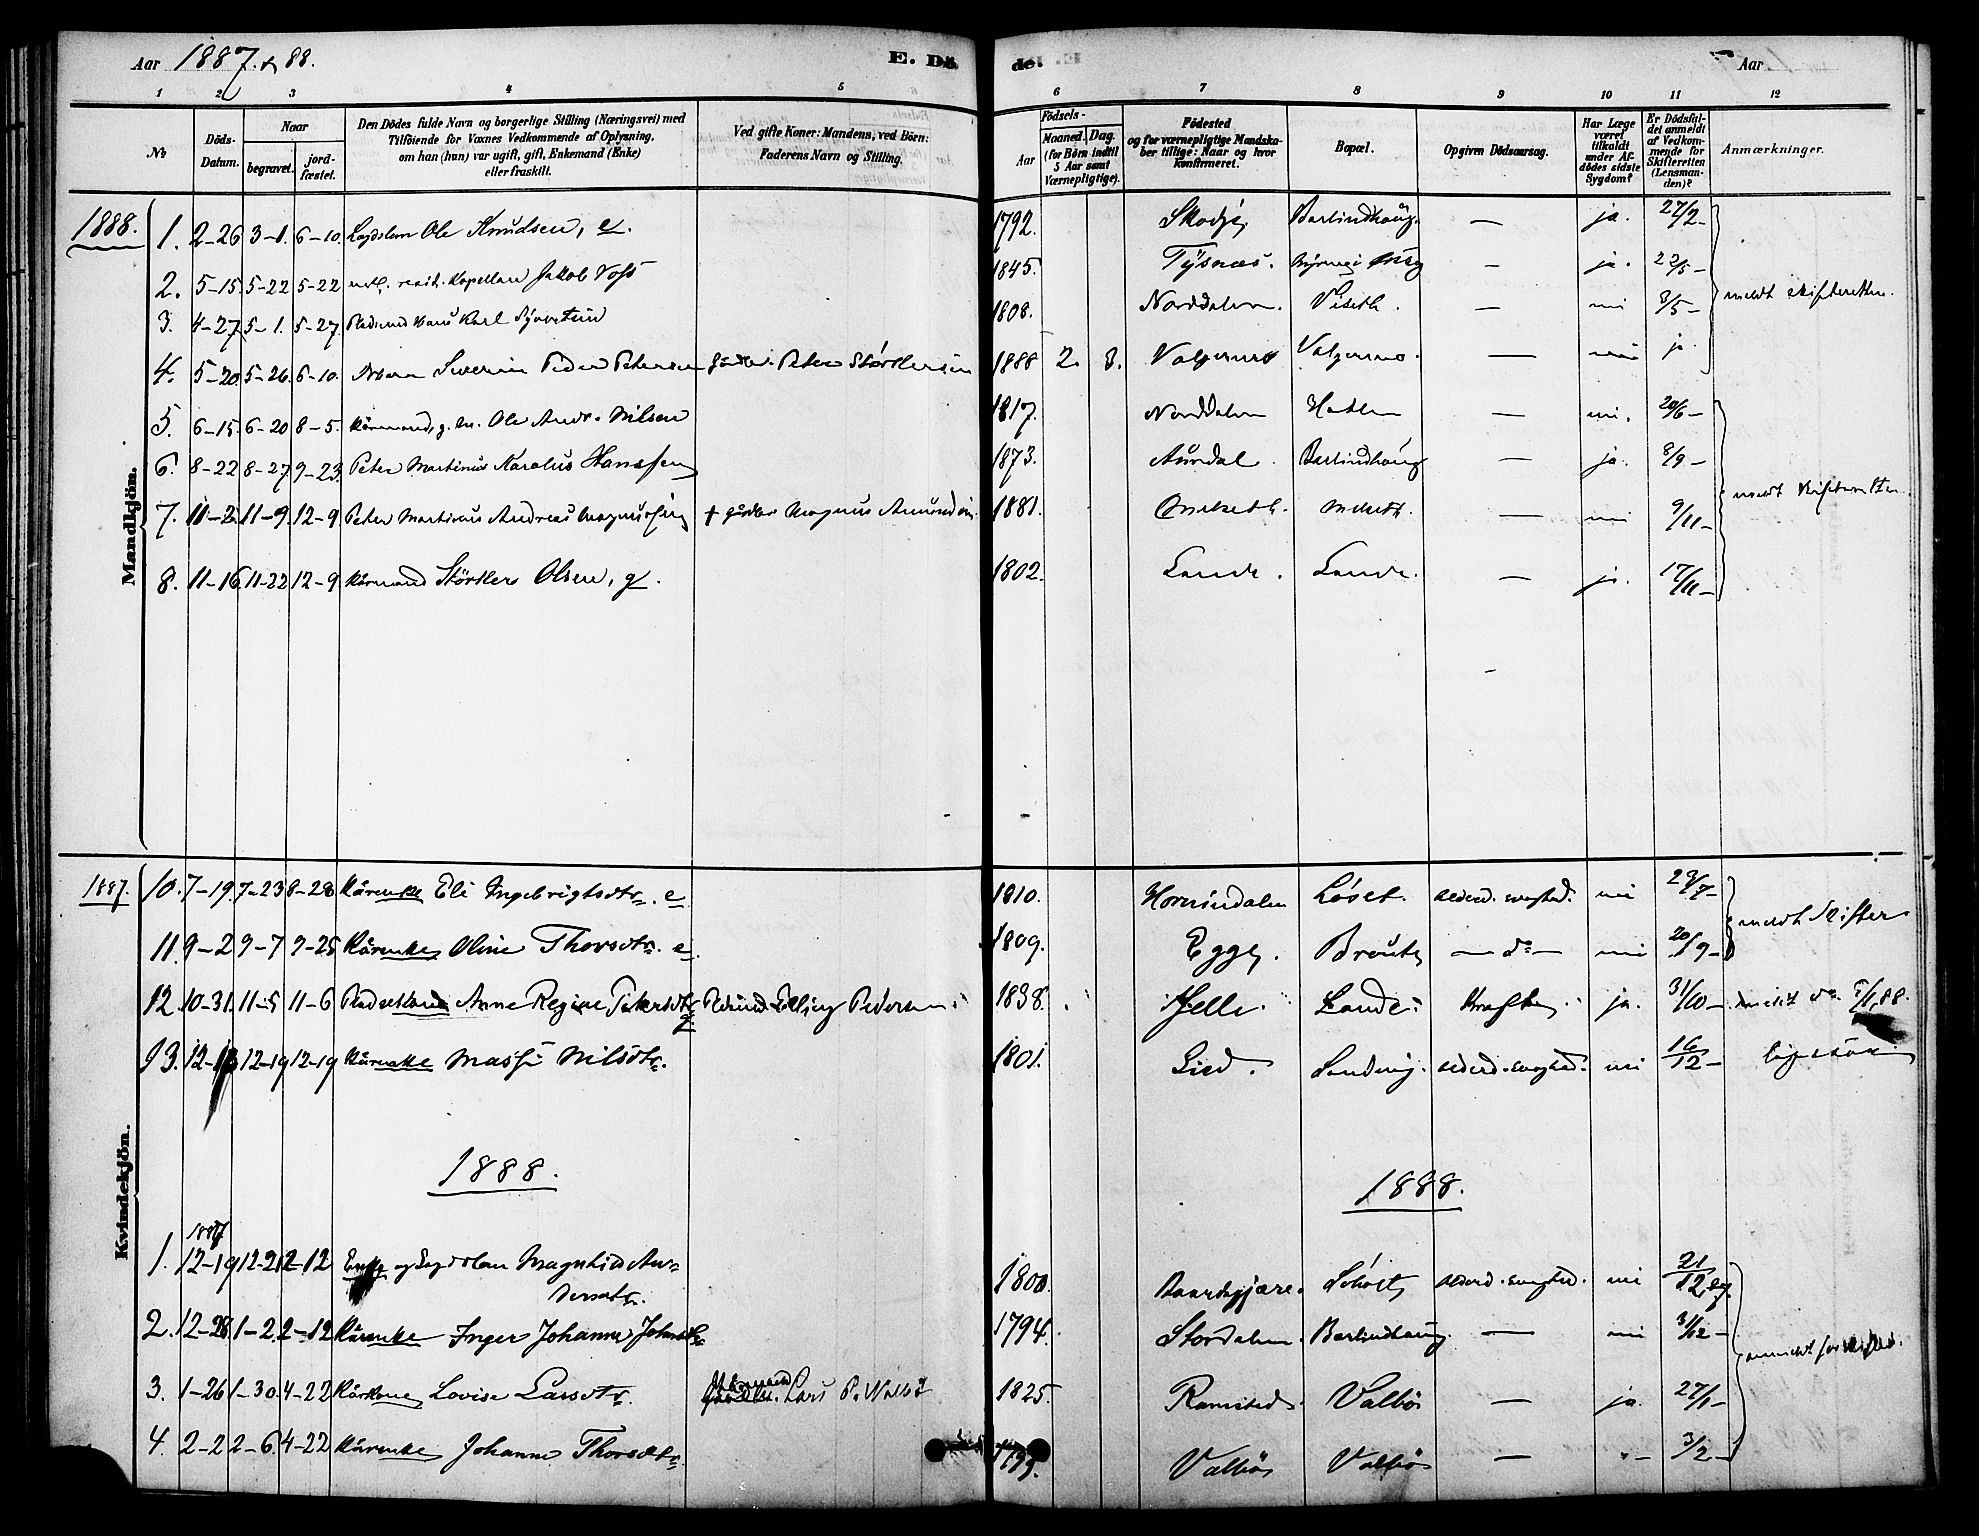 Aar 1887 & 88.
E. Dö
de.
Aar
1 2 3 4 5 6 7 8 9 10 11 12
No
Döds-Datum.
Naar
begravet.
jord-fæstet.
Den Dödes fulde Navn og borgerlige Stilling (Næringsvei) med
Tilföiende for Voxnes Vedkommende af Oplysning,
om han (hun) var ugift, gift, Enkemand (Enke)
eller fraskilt.
Ved gifte Koner: Mandens, ved Börn:
Faderens Navn og Stilling.
Födsels-
Aar
Maaned.
Dag.
(for Börn indtil
5 Aar samt
Værnepligtige).
Födested
og for værnepligtige Mandska-
ber tillige: Naar og hvor
konfirmeret.
Bopæl.
Opgiven Dödsaarsag.
Har Læge
været
tilkaldt
under Af-
dödes sidste
Sygdom?
Er Dödsfal-
det anmeldt
af Vedkom-
mende for
Skifteretten
(Lensman-
den)?
Anmærkninger.
Mandkjön.
1888. 1. 2-26 3-1. 6-10. Ole Knudsen, e. 1792. Skodje Barlindhaug. — ja. 27/2-
2. 5-15. 5-22 5-22 resid. Kapellan Jakob Voss 1845. Tysnæs. — ja. 22/5-
3. 4-27 5-1. 5-27. Karl 1808. Norddalen. Viseth. — nei 3/5-
meldt skifteretten.
4. 5-20. 5-26. 6-10. Severin Peder Petersen Peter Störkersen 1888 2. 8. Valgermo Valgermo. — nei ja
5. 6-15. 6-20 8-5. Kårmand, g. Ole Andr. Nilsen 1817. Norddalen — nei. 20/6-
6. 8-22 8-27. 9-23. Peter Martinus Karolus Hanssen 1873. Aurdal. Barlindhaug — ja. 8/9-
7. 11-2. 11-9. 12-9. Peter Martinus Andreas Magnussen + Magnus Amundsen. 1881. — nei 9/11-
meldt skifteretten.
8. 11-16. 11-22 12-9. Kårmand Störker Olsen, g. 1802. Lande. Lande. — ja. 17/11-
Kvindekjön.
1887. 10. 7-19. 7-23 8-28 Kårenke Eli Ingebrigtsdtr. e 1810. Hornindalen Løset. Alderd. svaghed. nei 29/7-
11. 9-2 9-7 9-25 Kårenke Oline Thorsdtr. e. 1809. Egge. — do — nei 20/9-
meldt Skifter
12. 10-31. 11-5 11-6 Anne Regine Elling Pedersen. 1838. Hjelle. Lande. ja. 31/10- meldt do. 88.
13. 12-1 12-19 12-19 Kårenke Massi Nilsdtr. 1801. Lied. Alderd. svaghed. nei 16/12-
1888. 1888.
1887
1. 12-19 12-21 2-12 Enke og Magnhild An-
dersdtr. 1800. Alderd. svaghed. nei 21/12 87.
2. 12-28. 1-2. 2-12 Kårenke Inger Johanne 1794. Stordalen. Barlindhaug. — nei 31/12-
3. 1-26 1-30. 4-22 Kårkone Lovise Larsdtr. Kårmand Lars P. Walbö 1825. Ramsted. Valbö — ja. 27/1-
4. 2-2 2-6. 4-22 Kårenke Johanne Thorsdtr. 1795. Valbö Valbö — 3/2-